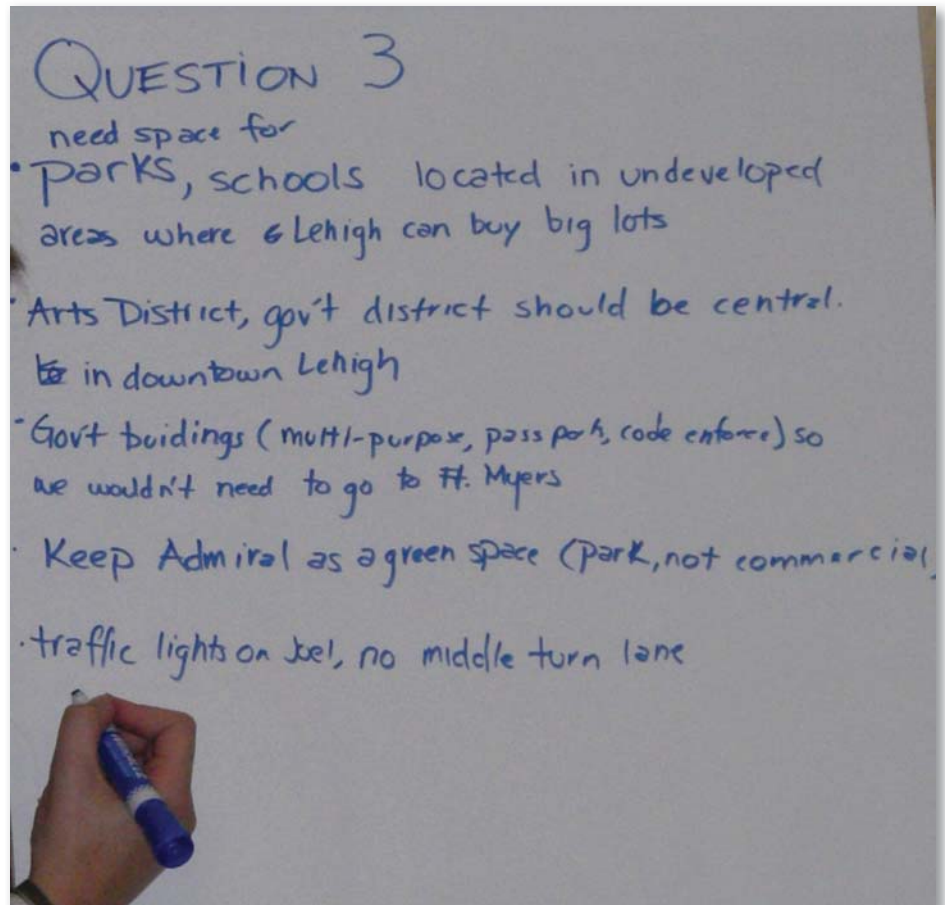 QUESTION 3
need space for
• parks, schools located in undeveloped
areas where Lehigh can buy big lots
• Arts District, gov't district should be central.
in downtown Lehigh
• Gov't buidings (multi-purpose, passport, code enforce) so
we wouldn't need to go to Ft. Myers
• Keep Admiral as a green space (park, not commercial)
• traffic lights on Joel, no middle turn lane